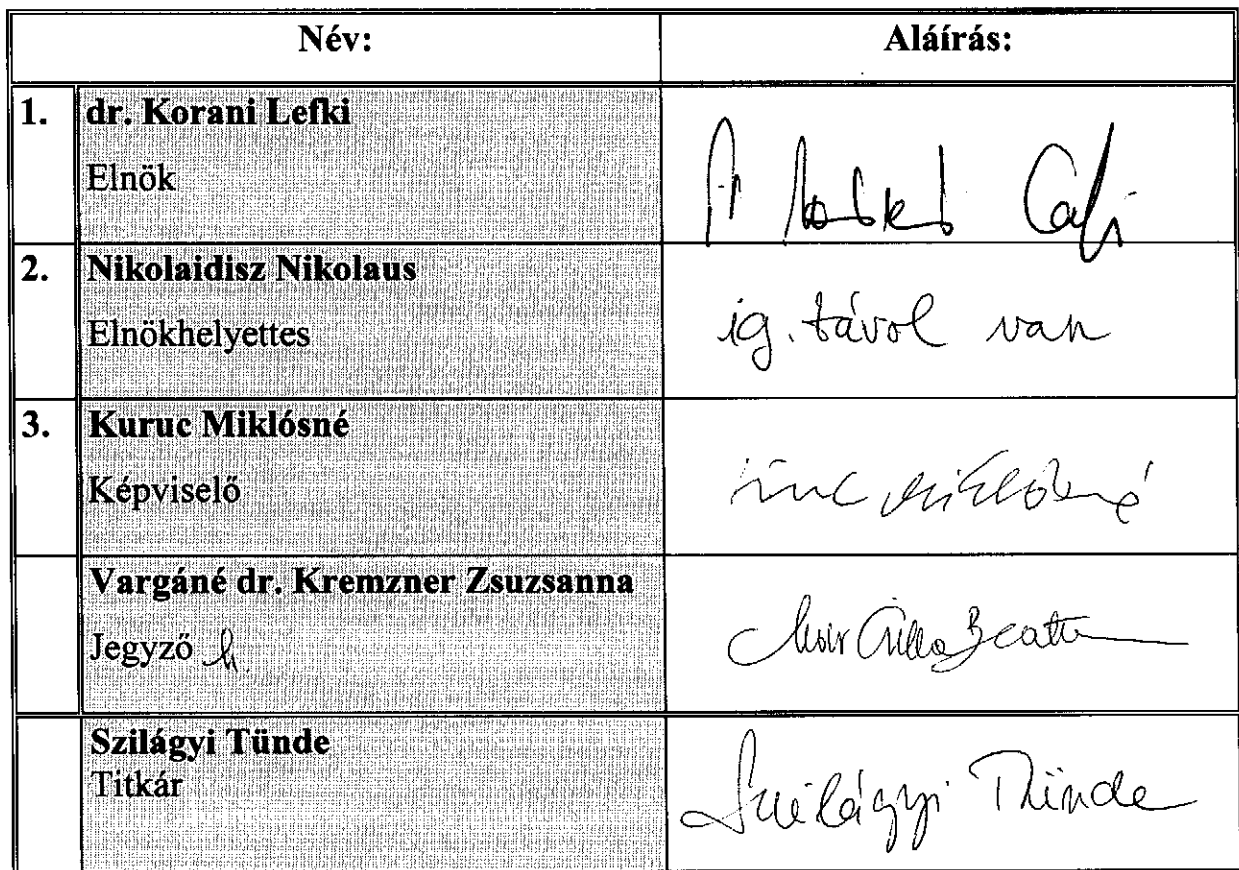 Név: Aláírás:
1. dr. Korani Lefki
Elnök
2. Nikolaidisz Nikolaus
Elnökhelyettes ig. távol van
3. Kuruc Miklósné
Képviselő
Vargáné dr. Kremzner Zsuzsanna
Jegyző h.
Szilágyi Tünde
Titkár Szilágyi Tünde